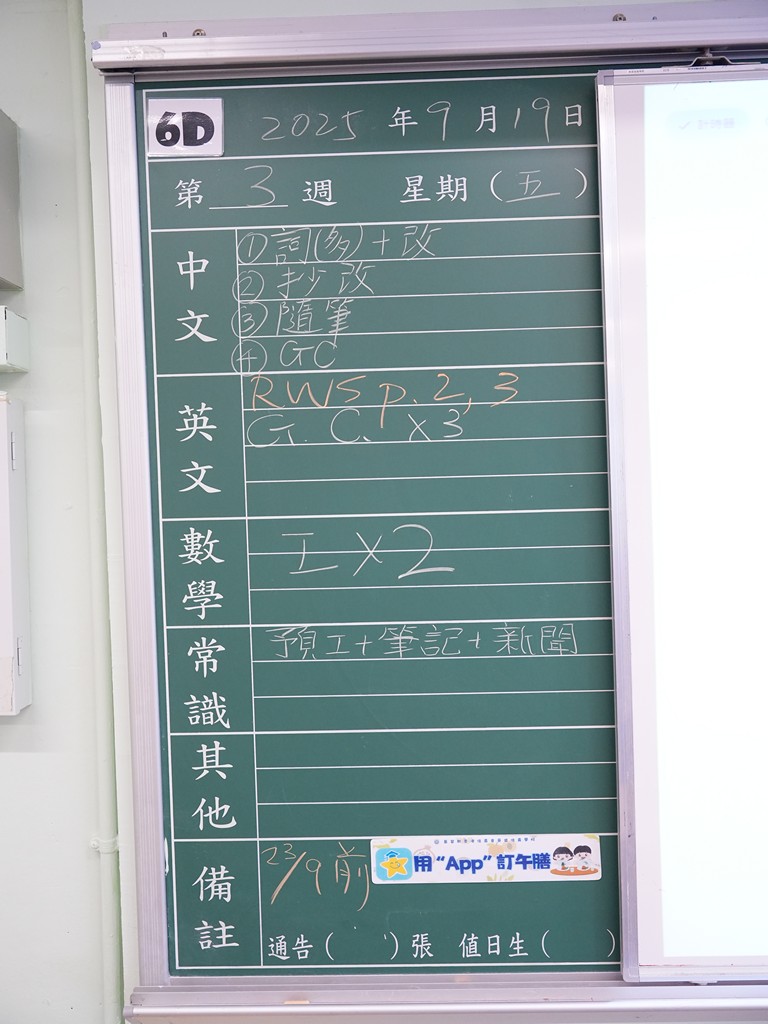 6D 2025 年 9 月 19 日
第 3 週 星期（五）
中文
① 詞(多)+改
② 抄改
③ 隨筆
④ GC
英文
RWS p. 2, 3
G. C. x3
數學
工 x 2
常識
預工+筆記+新聞
其他
備註
23/9 前
用 “App” 訂午膳
通告（ ）張 值日生（ ）